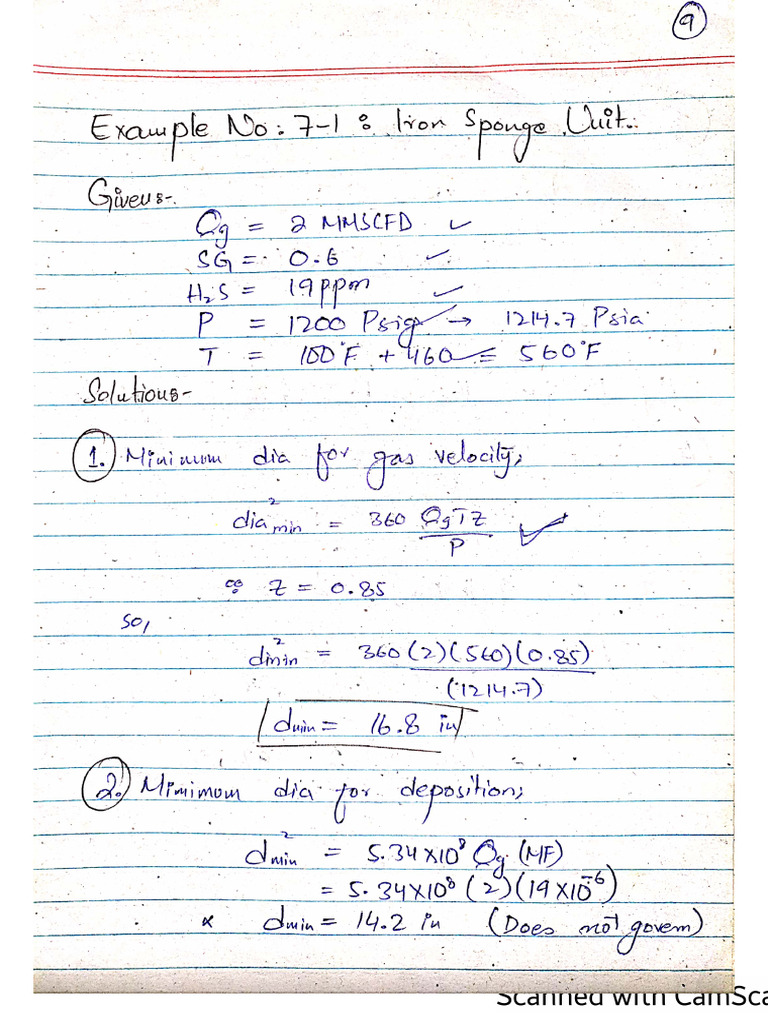 9
Example No: 7-1 : Iron Sponge Unit.
Given:-
Qg = 2 MMSCFD ✓
SG = 0.6 ✓
H₂S = 19ppm ✓
P = 1200 Psig ✓ → 1214.7 Psia
T = 100°F + 460 = 560°F
Solution:-
1. Minimum dia for gas velocity,
dia²min = 360 QgTZ / P ✓
∵ Z = 0.85
so,
d²min = 360(2)(560)(0.85) / (1214.7)
dmin = 16.8 in
2. Minimum dia for deposition,
d²min = 5.34×10⁸ Qg (MF)
= 5.34×10⁸ (2)(19×10⁻⁶)
dmin = 14.2 in (Does not govern)
Scanned with CamSca